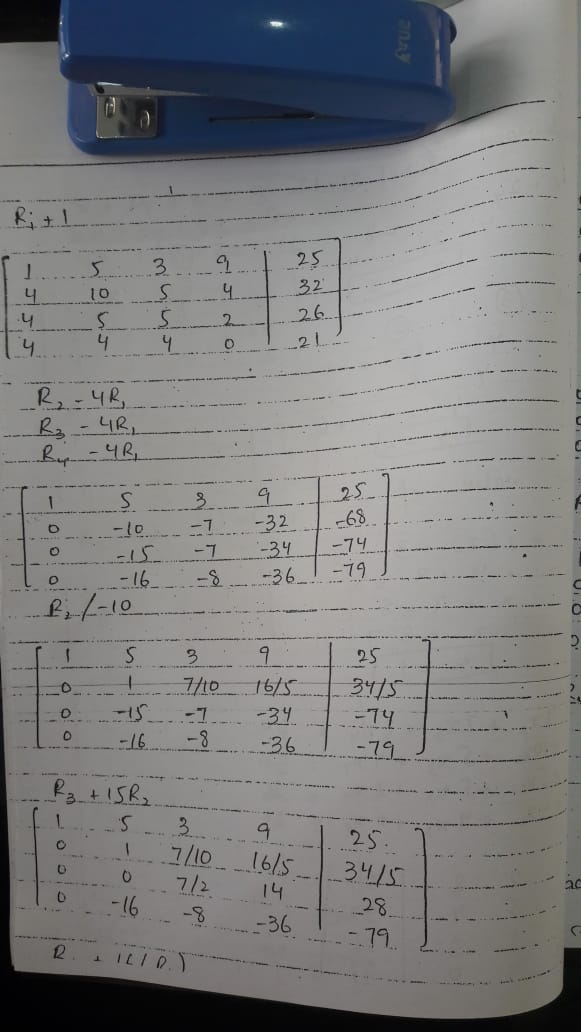 R₁ ÷ 1
1 5 3 9 | 25
4 10 5 4 | 32
4 5 5 2 | 26
4 4 4 0 | 21
R₂ - 4R₁
R₃ - 4R₁
R₄ - 4R₁
1 5 3 9 | 25
0 -10 -7 -32 | -68
0 -15 -7 -34 | -74
0 -16 -8 -36 | -79
R₂/-10
1 5 3 9 | 25
0 1 7/10 16/5 | 34/5
0 -15 -7 -34 | -74
0 -16 -8 -36 | -79
R₃ + 15R₂
1 5 3 9 | 25
0 1 7/10 16/5 | 34/5
0 0 7/2 14 | 28
0 -16 -8 -36 | -79